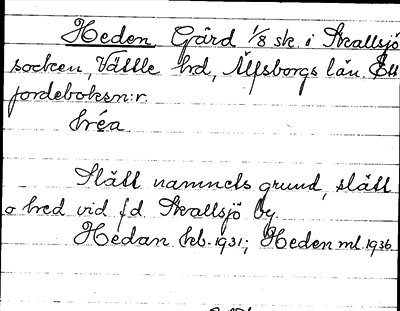 Heden Gård 1/8 sk. i Skallsjö
socken, Vättle hd, Älfsborgs län. Ett
jordeboksn:r.
hréa
Slätt namnets grund, slätt
o bred vid f.d. Skallsjö by.
Hedan kb. 1931; Heden ml 1936